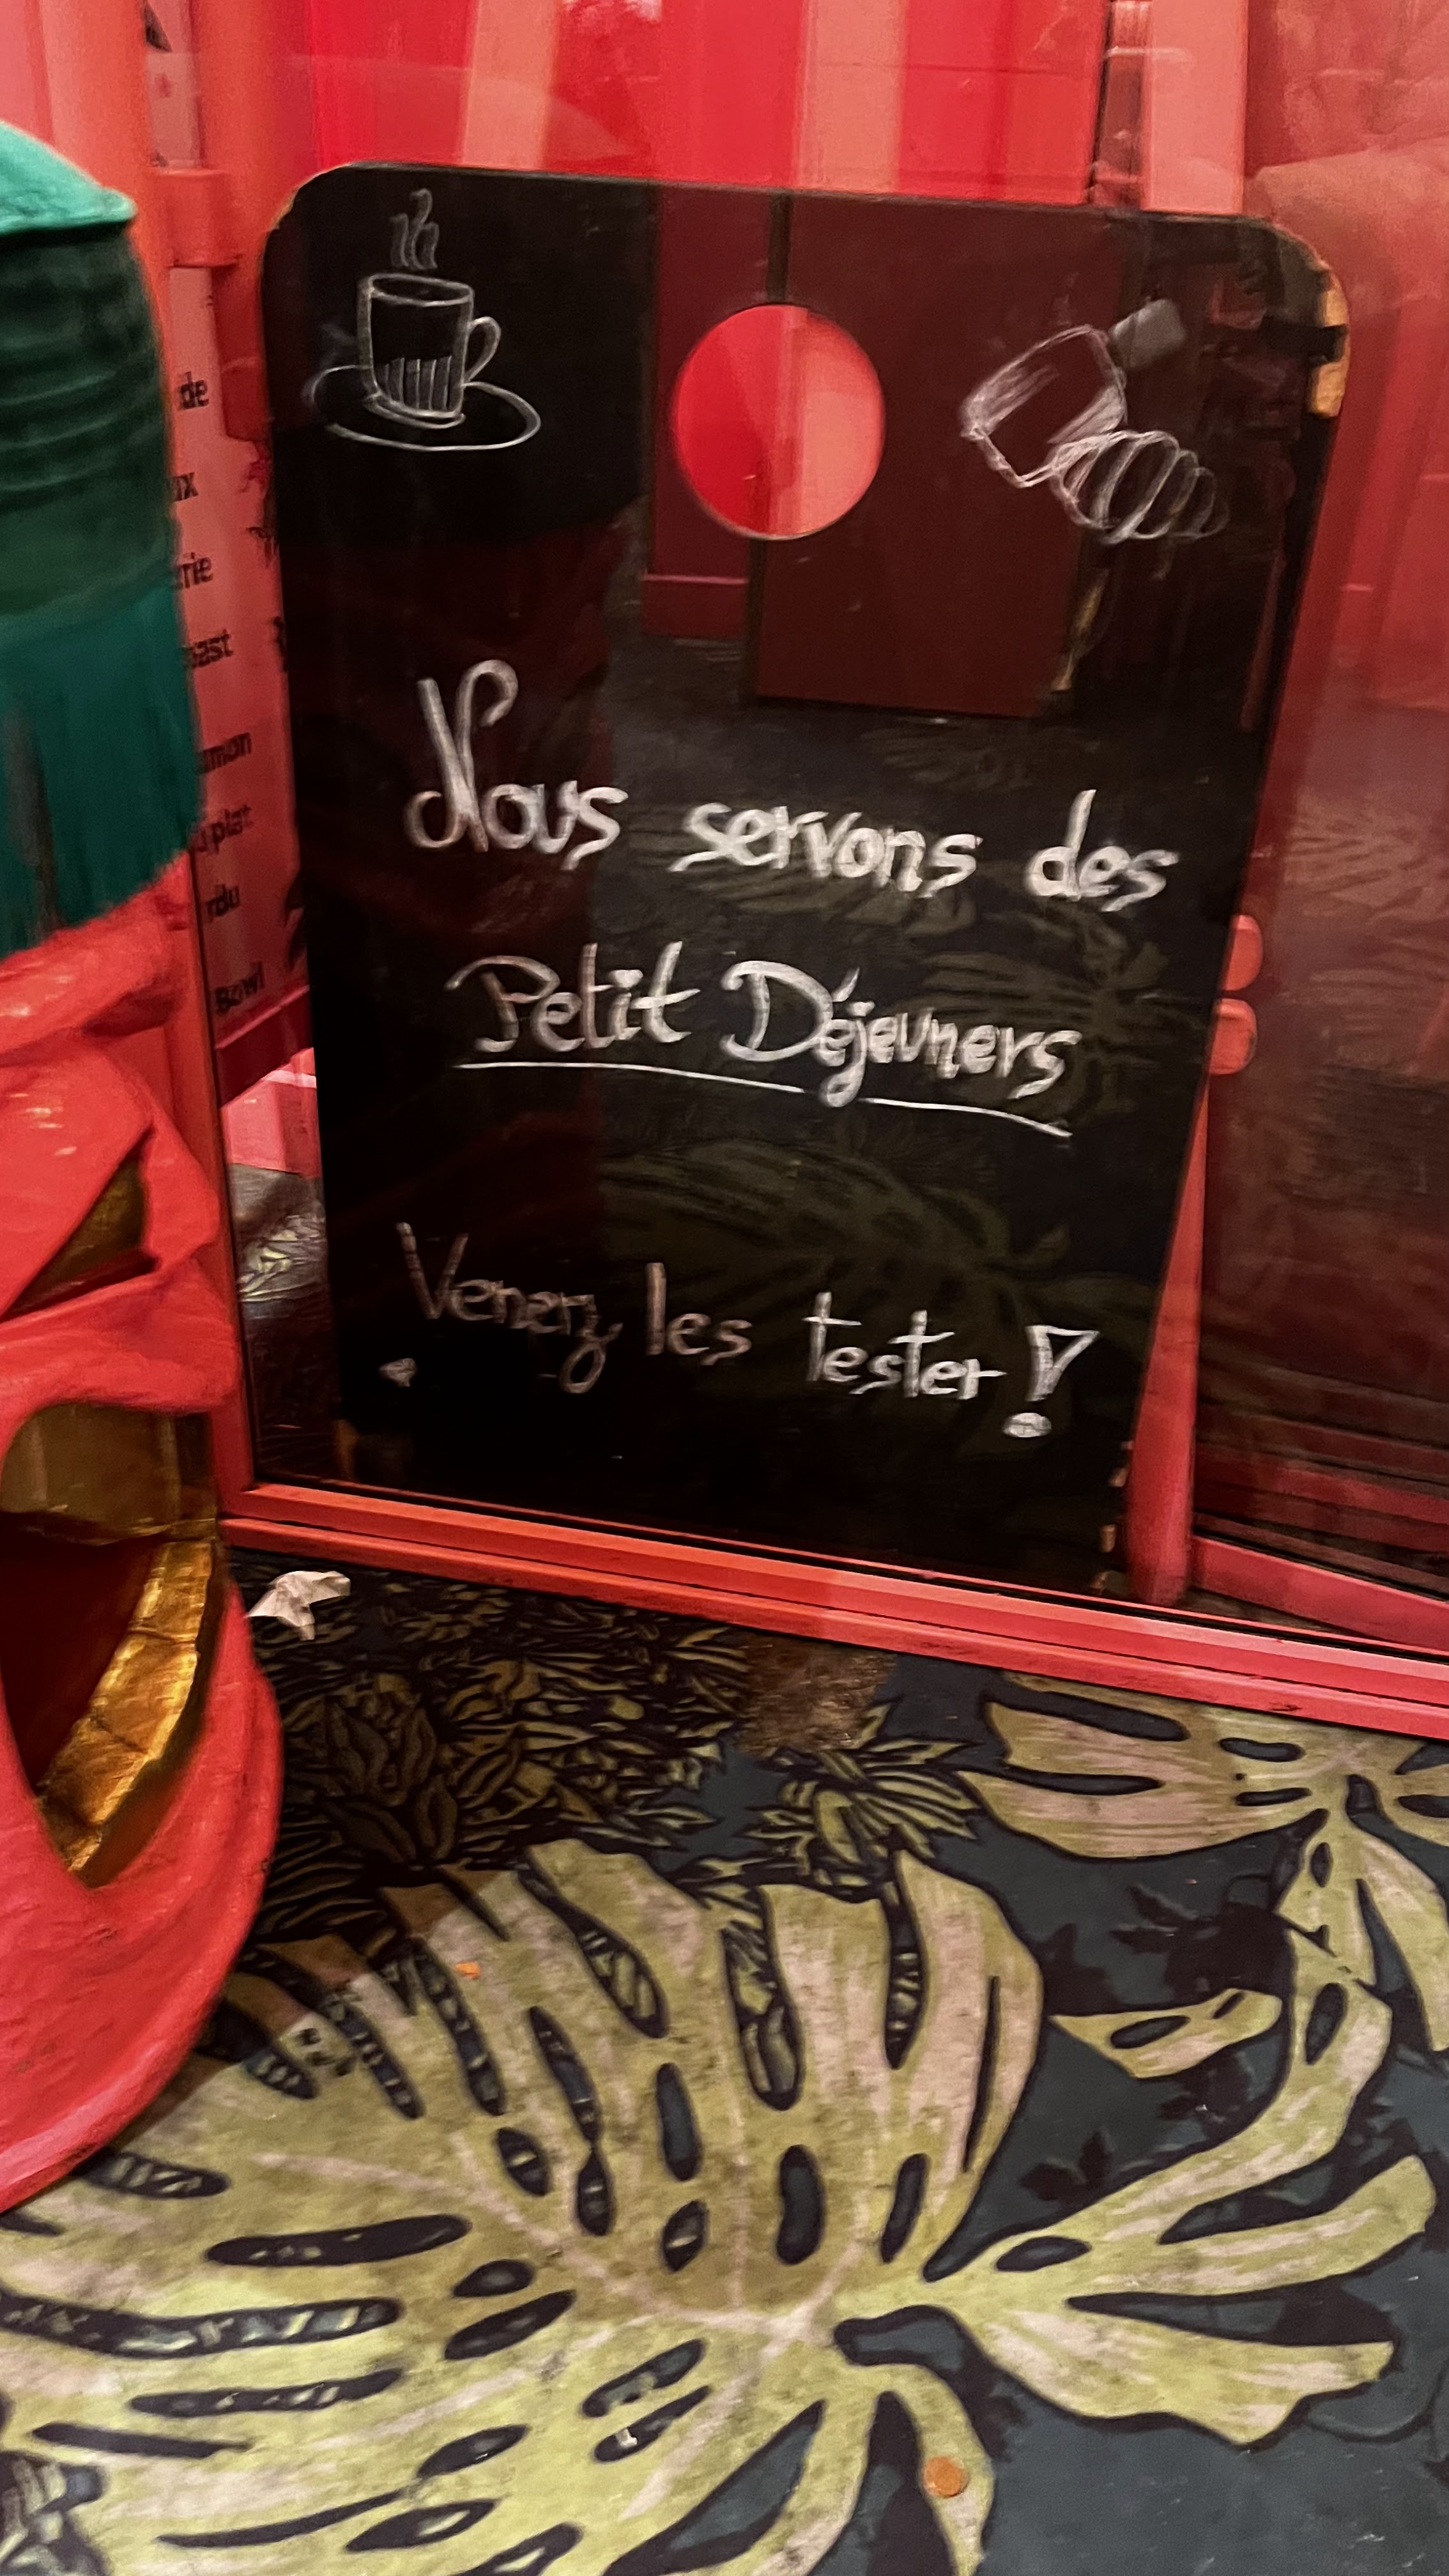 Nous servons des
Petit Déjeuners
Venez les tester !
de
rie
plat
Bowl